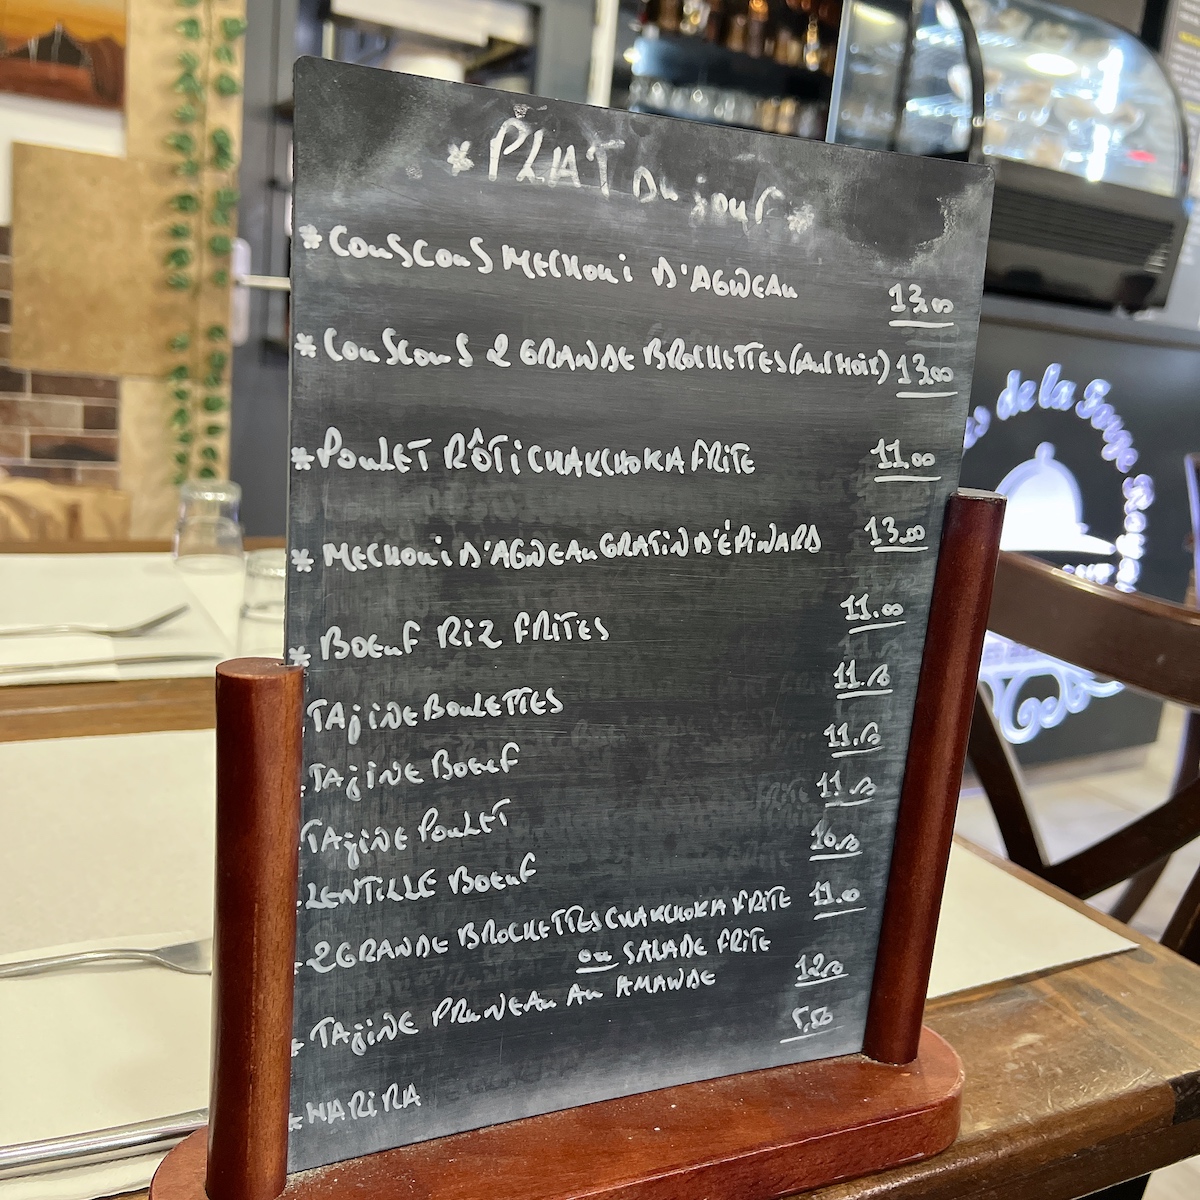 * PLAT Du jour *
* Couscous MECHoui D'AGNEAu 13.00
* Couscous 2 GRANDE BROCHETTES (Au CHOix) 13.00
* PouLET RÔTi CHAKCHOKA FRITE 11.00
* MECHOui D'AGNEAu GRATIN D'ÉPiNARD 13.00
* BOEuF RIZ FRITES 11.00
TAjiNE BouLETTES
TAjiNE BOEuF
TAjiNE PouLET
LENTiLLE BOEuF
2 GRANDE BROCHETTES CHAKCHOKA FRITE 11.0
ou SALADE FRITE
TAjiNE PRuNEAu Au AMANDE
* HARiRA 5,50
de la